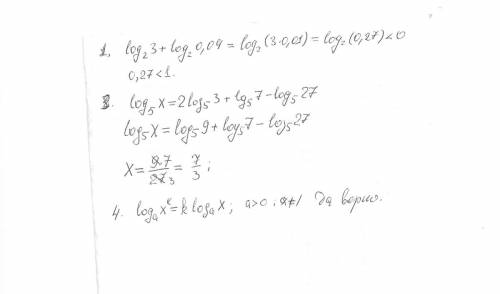 1, log₂3 + log₂0,09 = log₂(3·0,01) = log₂(0,27) < 0
0,27 < 1.
3. log₅x = 2log₅3 + lg₅7 - log₅27
log₅x = log₅9 + log₅7 - log₅27
x = 9·7/27 3 = 7/3 ;
4. logₐxᵏ = k logₐx ; a>0 ; a≠1 Да верно.